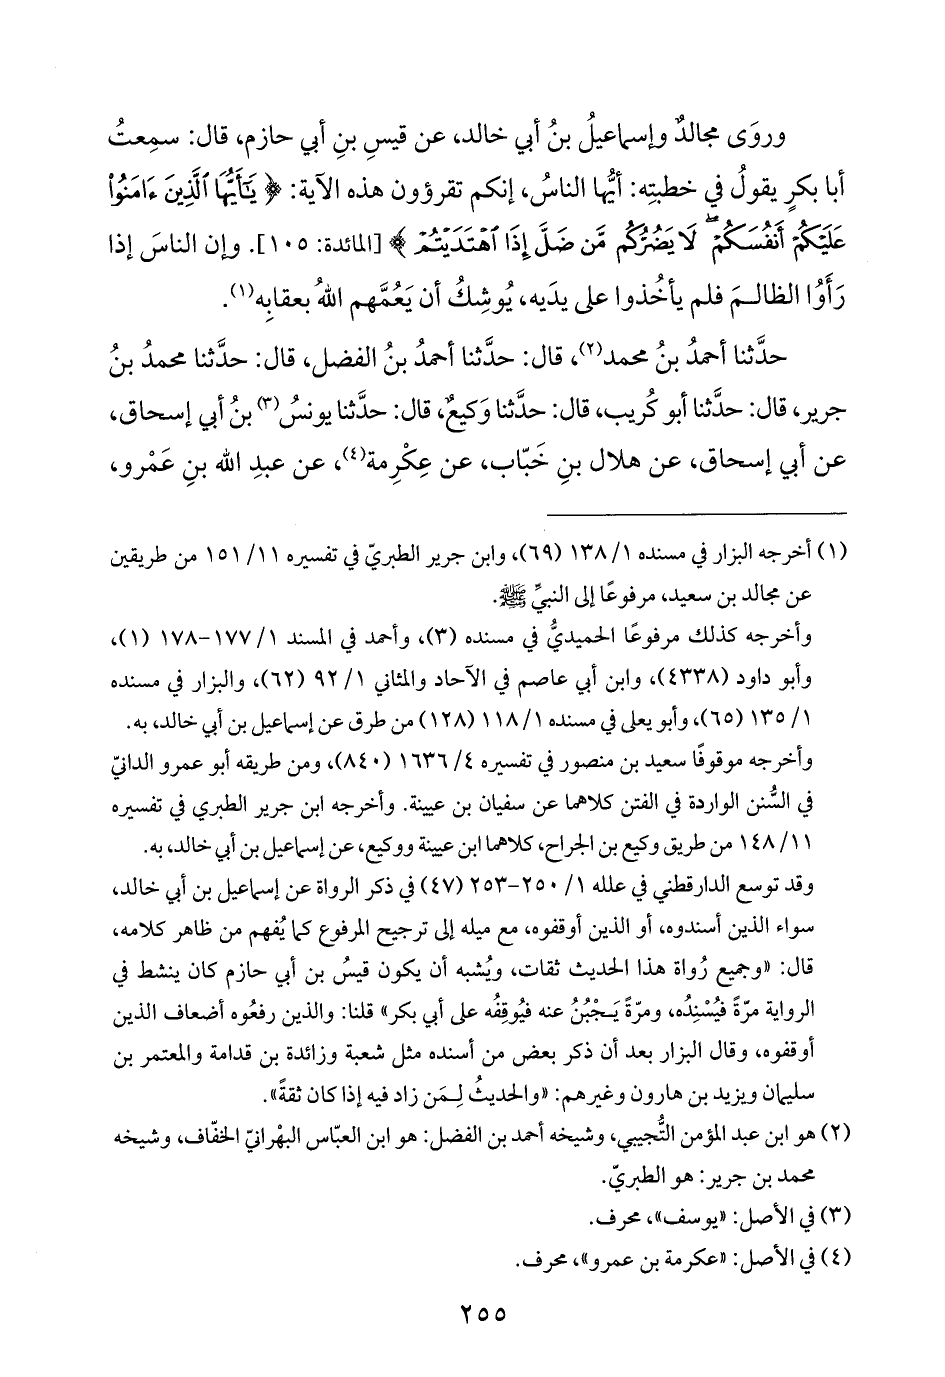 وروَى مجالدٌ وإسماعيلُ بنُ أبي خالد، عن قيسِ بنِ أبي حازم، قال: سمِعتُ
أبا بكرٍ يقولُ في خطبتِه: أيُّها الناسُ، إنكم تقرؤون هذه الآية: ﴿ يَٰٓأَيُّهَا ٱلَّذِينَ ءَامَنُواْ
عَلَيْكُمْ أَنفُسَكُمْۖ لَا يَضُرُّكُم مَّن ضَلَّ إِذَا ٱهْتَدَيْتُمْ ﴾ [المائدة: ١٠٥]. وإن الناسَ إذا
رَأَوُا الظالـمَ فلم يأخُذوا على يدَيه، يُوشِكُ أن يَعُمَّهم اللهُ بعقابِه(١).
حدَّثنا أحمدُ بنُ محمد(٢)، قال: حدَّثنا أحمدُ بنُ الفضل، قال: حدَّثنا محمدُ بنُ
جرير، قال: حدَّثنا أبو كُريب، قال: حدَّثنا وَكيعٌ، قال: حدَّثنا يونسُ(٣) بنُ أبي إسحاق،
عن أبي إسحاق، عن هلال بنِ خَبّاب، عن عِكْرِمة(٤)، عن عبدِ الله بنِ عَمْرو،
(١) أخرجه البزار في مسنده ١/ ١٣٨ (٦٩)، وابن جرير الطبريّ في تفسيره ١١/ ١٥١ من طريقين
عن مجالد بن سعيد، مرفوعًا إلى النبيِّ ﷺ.
وأخرجه كذلك مرفوعًا الحميديُّ في مسنده (٣)، وأحمد في المسند ١/ ١٧٧-١٧٨ (١)،
وأبو داود (٤٣٣٨)، وابن أبي عاصم في الآحاد والمثاني ١/ ٩٢ (٦٢)، والبزار في مسنده
١/ ١٣٥ (٦٥)، وأبو يعلى في مسنده ١/ ١١٨ (١٢٨) من طرق عن إسماعيل بن أبي خالد، به.
وأخرجه موقوفًا سعيد بن منصور في تفسيره ٤/ ١٦٣٦ (٨٤٠)، ومن طريقه أبو عمرو الدانيّ
في السُّنن الواردة في الفتن كلاهما عن سفيان بن عيينة. وأخرجه ابن جرير الطبري في تفسيره
١١/ ١٤٨ من طريق وكيع بن الجراح، كلاهما ابن عيينة ووكيع، عن إسماعيل بن أبي خالد، به.
وقد توسع الدارقطني في علله ١/ ٢٥٠-٢٥٣ (٤٧) في ذكر الرواة عن إسماعيل بن أبي خالد،
سواء الذين أسندوه، أو الذين أوقفوه، مع ميله إلى ترجيح المرفوع كما يُفهم من ظاهر كلامه،
قال: «وجميع رُواة هذا الحديث ثقات، ويُشبه أن يكون قيسُ بن أبي حازم كان ينشط في
الرواية مرّةً فيُسْنِدُه، ومرّةً يَـجْبُنُ عنه فيُوقِفُه على أبي بكر» قلنا: والذين رفعُوه أضعاف الذين
أوقفوه، وقال البزار بعد أن ذكر بعض من أسنده مثل شعبة وزائدة بن قدامة والمعتمر بن
سليمان ويزيد بن هارون وغيرهم: «والحديثُ لِـمَن زاد فيه إذا كان ثقةً».
(٢) هو ابن عبد المؤمن التُّجيبي، وشيخه أحمد بن الفضل: هو ابن العبّاس البهْرانيّ الخفّاف، وشيخه
محمد بن جرير: هو الطبريّ.
(٣) في الأصل: «يوسف»، محرف.
(٤) في الأصل: «عكرمة بن عمرو»، محرف.
٢٥٥